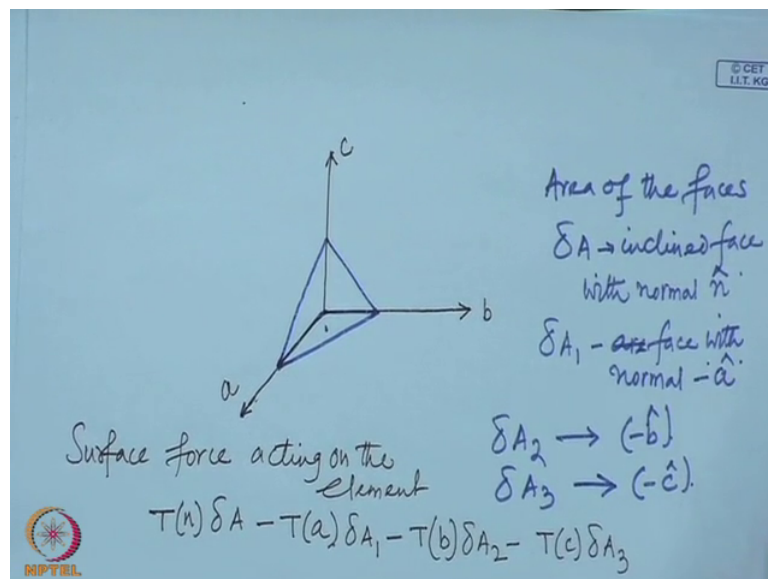 © CET
I.I.T. KG
c
b
a
Area of the faces
δA → inclined face
with normal n̂.
δA₁ - face with
normal -â
δA₂ → (-b̂)
δA₃ → (-ĉ).
Surface force acting on the
element
T(n)δA - T(a)δA₁ - T(b)δA₂ - T(c)δA₃
NPTEL